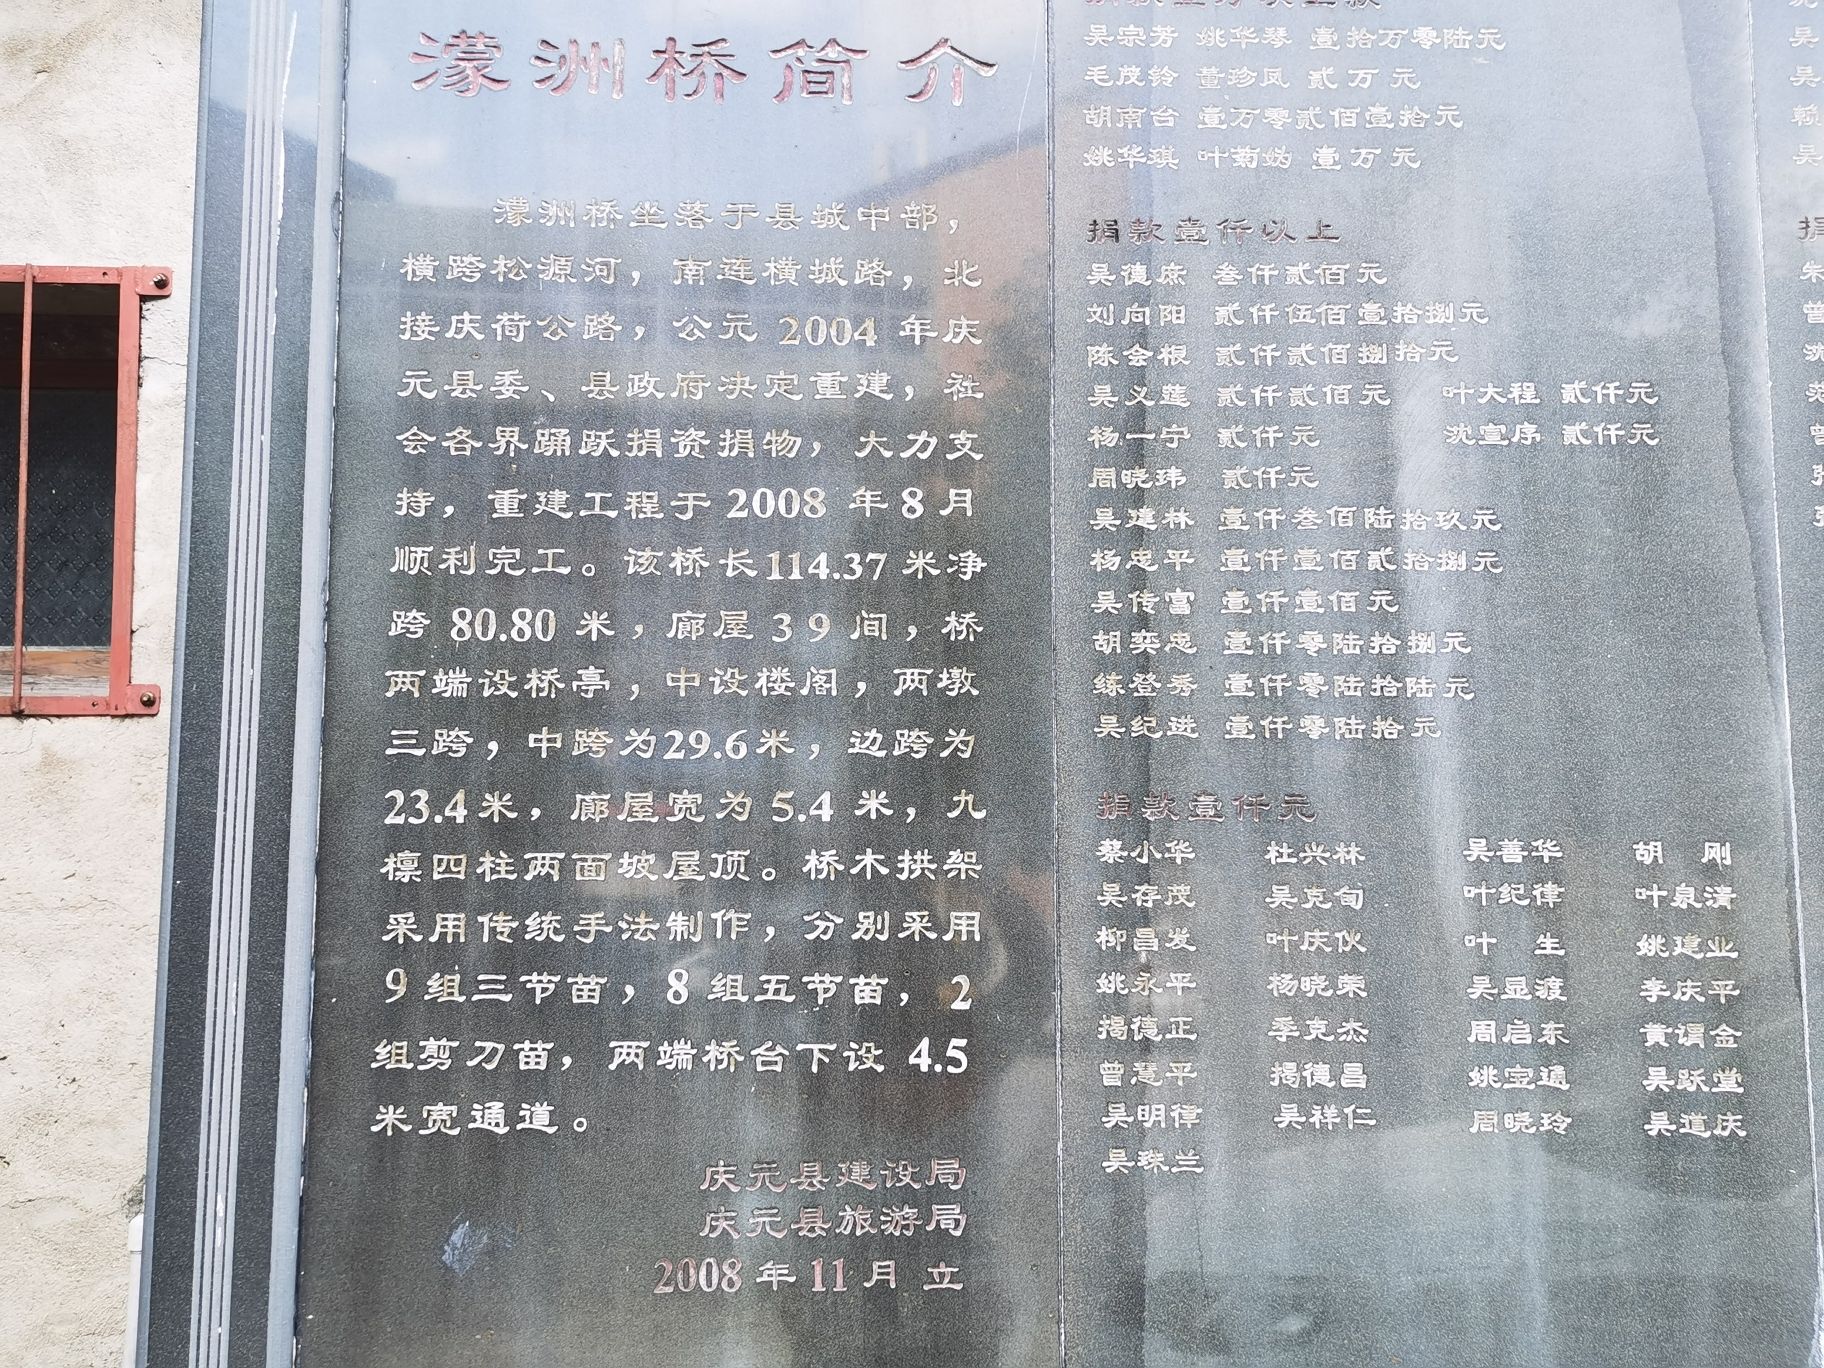 濛洲桥简介
濛洲桥坐落于县城中部，
横跨松源河，南连横城路，北
接庆荷公路，公元 2004 年庆
元县委、县政府决定重建，社
会各界踊跃捐资捐物，大力支
持，重建工程于 2008 年 8 月
顺利完工。该桥长 114.37 米净
跨 80.80 米，廊屋 3 9 间，桥
两端设桥亭，中设楼阁，两墩
三跨，中跨为29.6米，边跨为
23.4米，廊屋宽为 5.4 米，九
檩四柱两面坡屋顶。桥木拱架
采用传统手法制作，分别采用
9 组三节苗，8 组五节苗，2
组剪刀苗，两端桥台下设 4.5
米宽通道。
庆元县建设局
庆元县旅游局
2008 年 11 月 立
吴宗芳 姚华琴 壹拾万零陆元
毛茂铃 董珍凤 贰万元
胡南台 壹万零贰佰壹拾元
姚华琪 叶菊 壹万元
捐款壹仟以上
吴德庶 叁仟贰佰元
刘向阳 贰仟伍佰壹拾捌元
陈会根 贰仟贰佰捌拾元
吴义莲 贰仟贰佰元 叶大程 贰仟元
杨一宁 贰仟元 沈宣序 贰仟元
周晓玮 贰仟元
吴建林 壹仟叁佰陆拾玖元
杨忠平 壹仟壹佰贰拾捌元
吴传富 壹仟壹佰元
胡奕忠 壹仟零陆拾捌元
练登秀 壹仟零陆拾陆元
吴纪进 壹仟零陆拾元
捐款壹仟元
蔡小华 杜兴林 吴善华 胡 刚
吴存茂 吴克甸 叶纪律 叶泉清
柳昌发 叶庆伙 叶 生 姚建业
姚永平 杨晓荣 吴显渡 李庆平
揭德正 季克杰 周启东 黄谓金
曾慧平 揭德昌 姚宝通 吴跃堂
吴明律 吴祥仁 周晓玲 吴道庆
吴珠兰